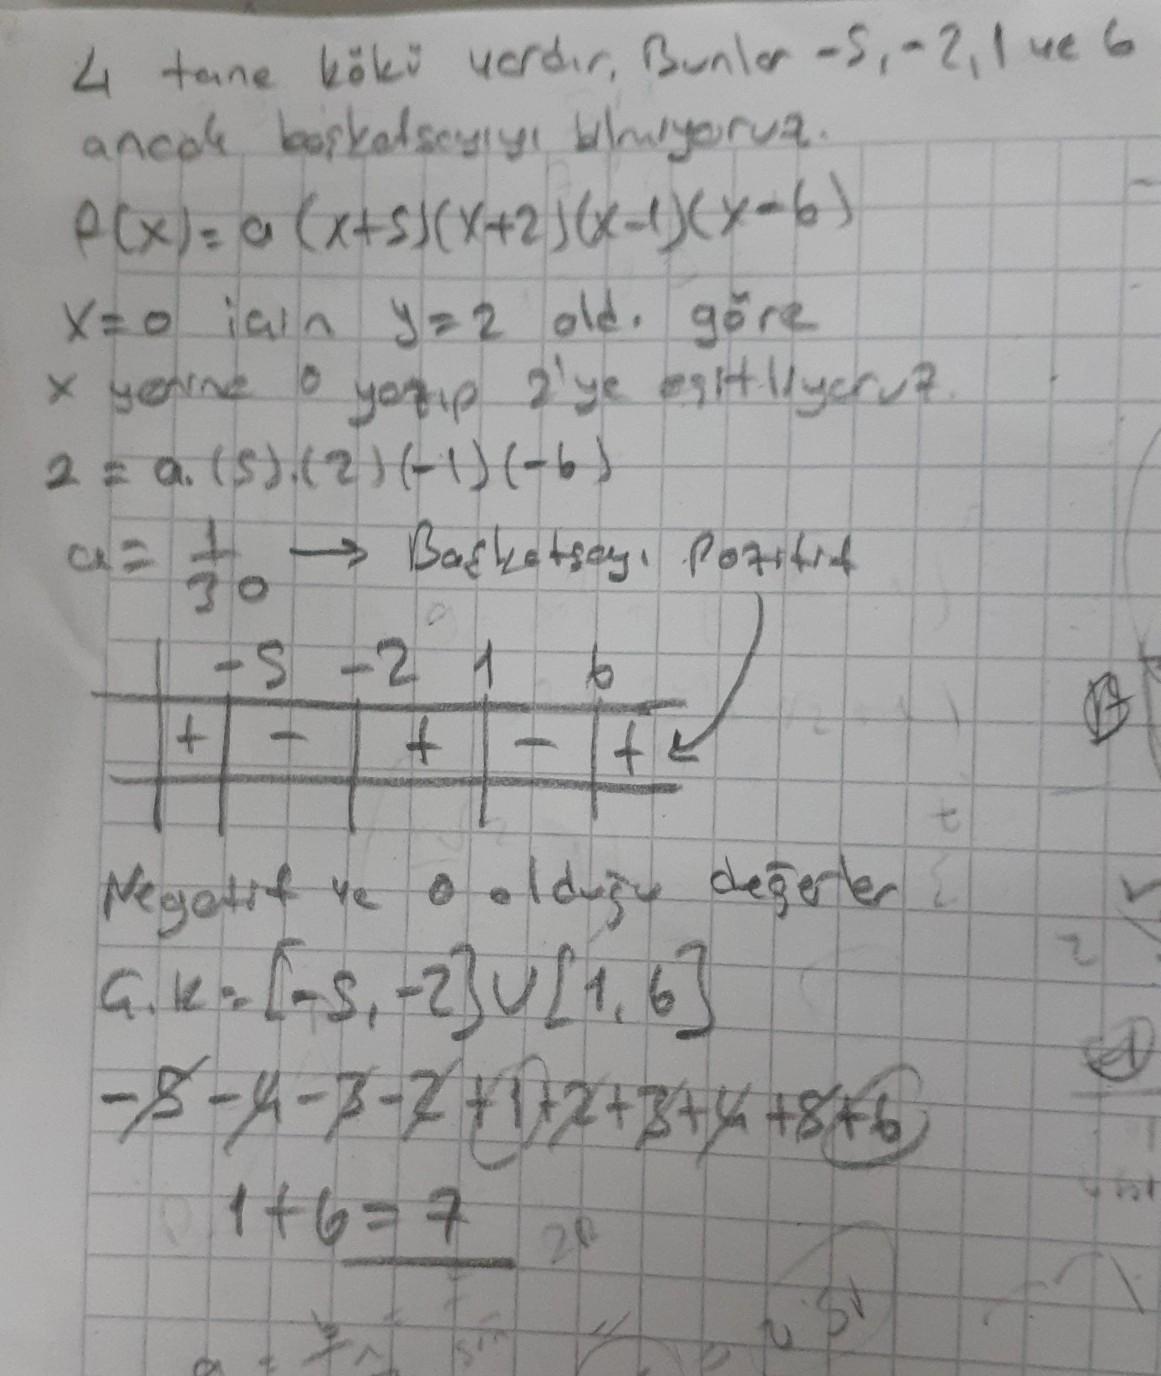 4 tane kökü vardır, Bunlar -5, -2, 1 ve 6
ancak başkatsayıyı bilmiyoruz.
P(x) = a (x+5)(x+2)(x-1)(x-6)
x=0 için y=2 old. göre
x yerine 0 yazıp 2'ye eşitliyoruz.
2 = a.(5).(2)(-1)(-6)
a = 1/30 → Başkatsayı Pozitif
-5 -2 1 6
+ - + - +
Negatif ve 0 olduğu değerler
Ç.K = [-5, -2] U [1, 6]
-5-4-3-2+1+2+3+4+5+6
1+6=7